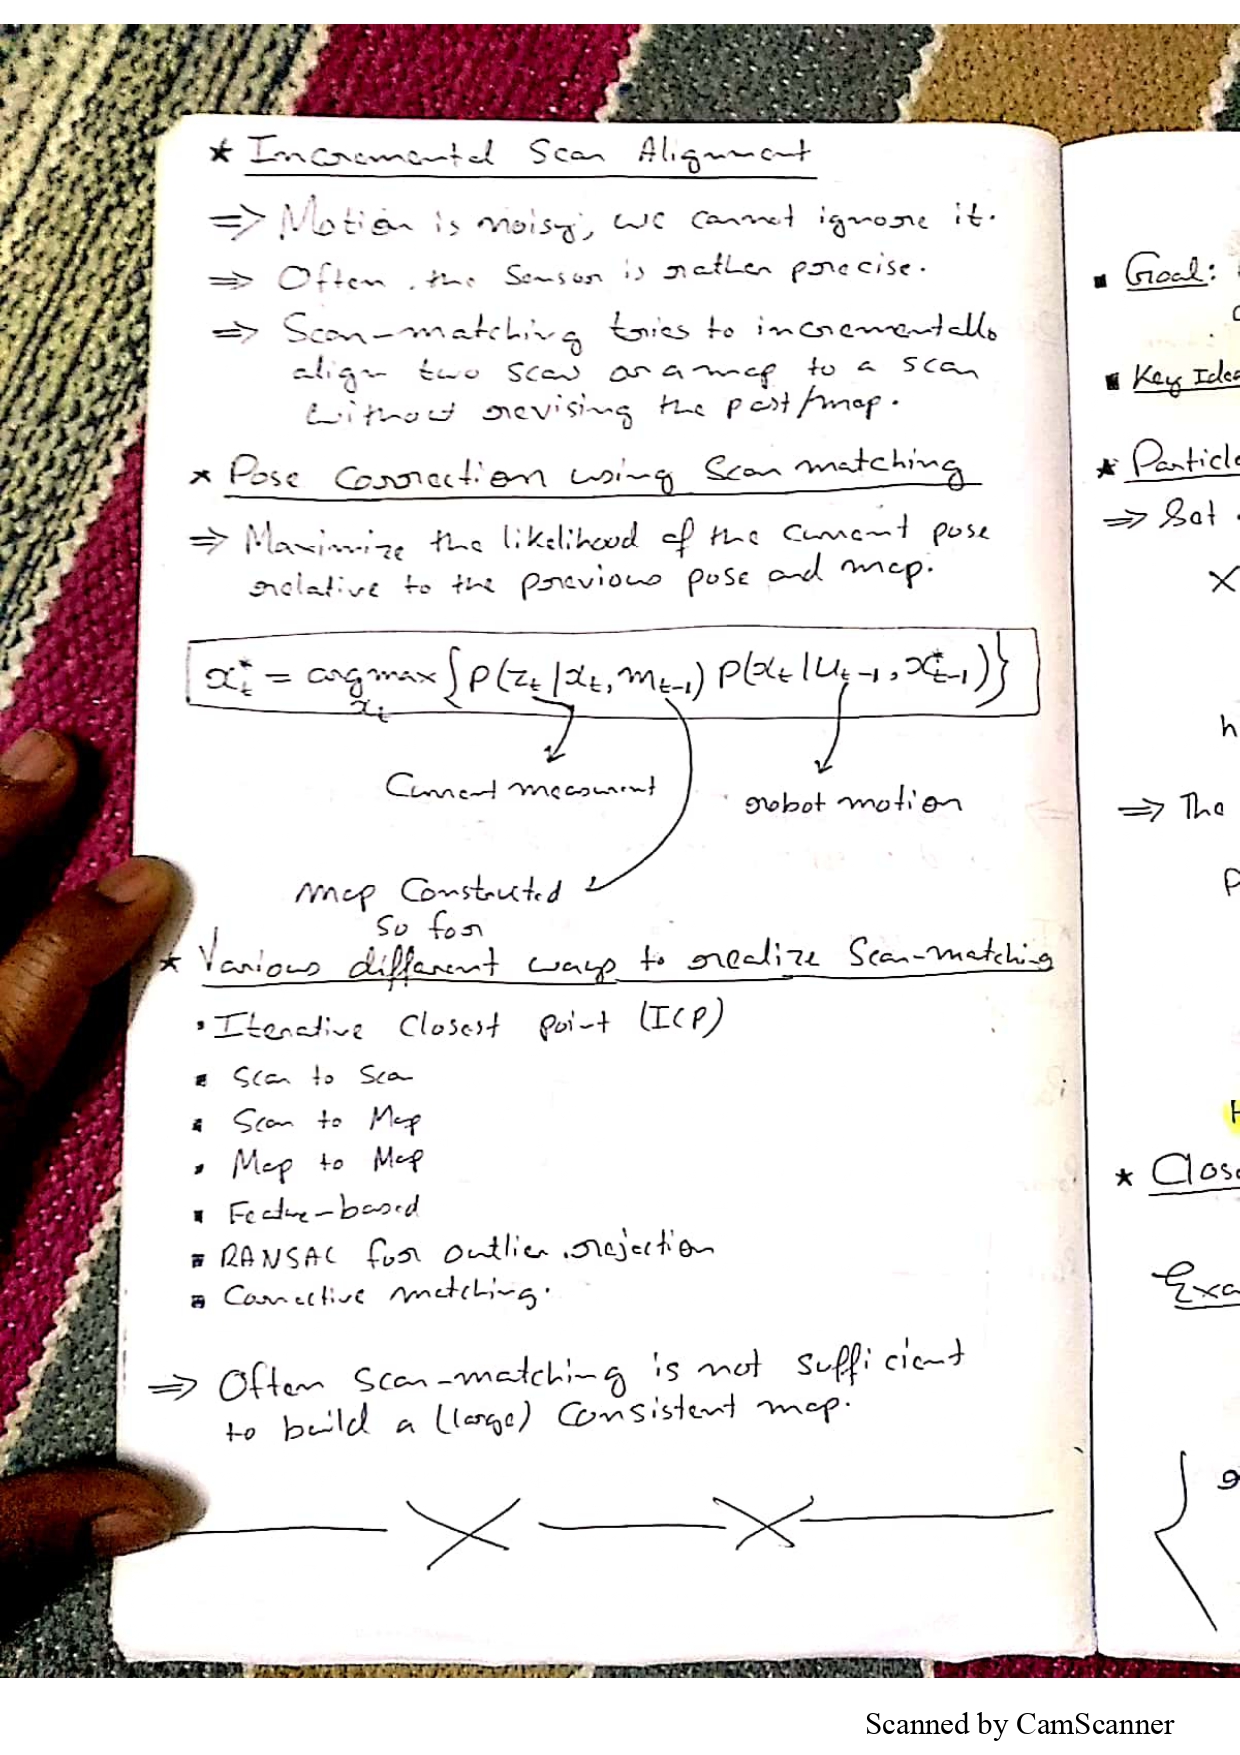 ★ Incremental Scan Alignment
⇒ Motion is noisy, we cannot ignore it.
⇒ Often, the sensor is rather precise.
⇒ Scan-matching tries to incrementally
align two scans or a map to a scan
without revising the past/map.
★ Pose Correction using Scan matching
⇒ Maximize the likelihood of the current pose
relative to the previous pose and map.
x*_t = argmax_{x_t} { P(z_t | x_t, m_{t-1}) P(x_t | u_{t-1}, x*_{t-1}) }
Current measurment
robot motion
map Constructed
so far
★ Various different ways to realize Scan-matching
• Iterative Closest point (ICP)
▪ Scan to Scan
▪ Scan to Map
▪ Map to Map
▪ Feature-based
▪ RANSAC for outlier rejection
▪ Correlative matching.
⇒ Often scan-matching is not sufficient
to build a (large) Consistent map.
▪ Goal:
▪ Key Idea
★ Particle
⇒ Set
X
h
⇒ The
P
★ Close
Exa
Scanned by CamScanner